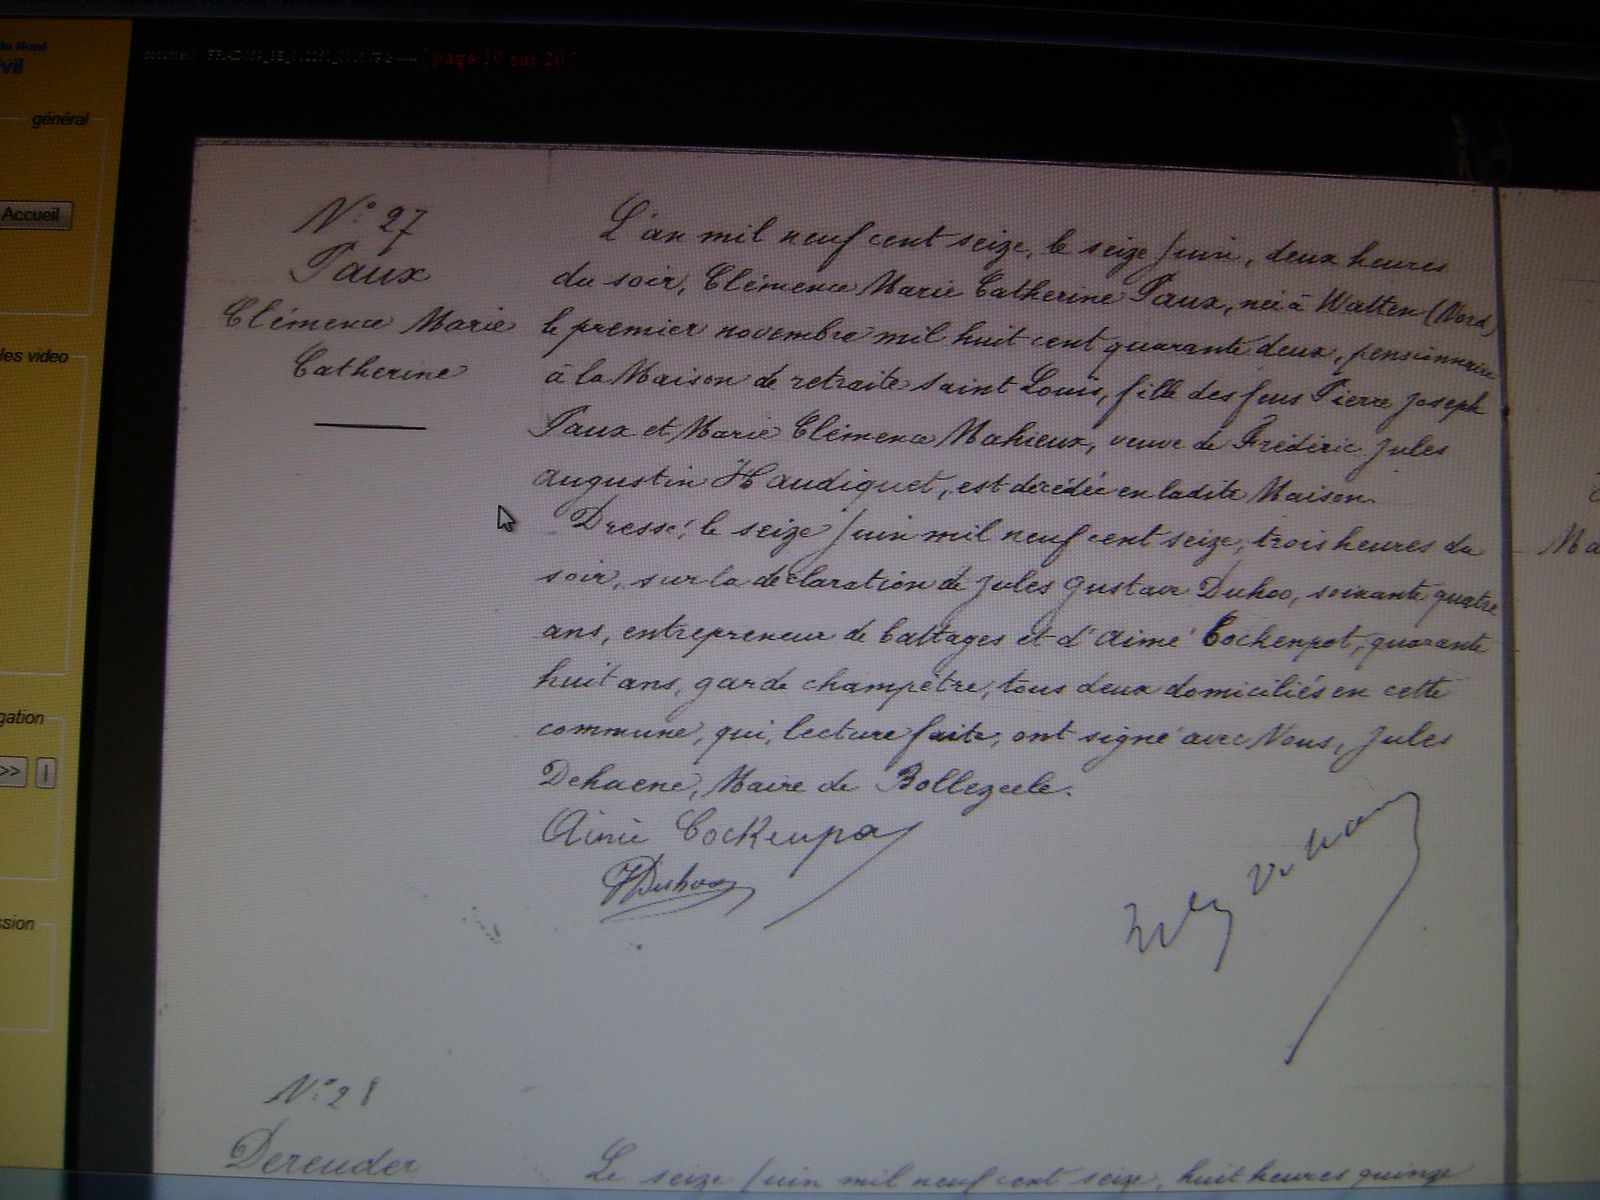 du Nord
vil
[ page 10 sur 20 ]
général
Accueil
les video
gation
>>
ssion
N° 27
Paux
Clémence Marie
Catherine
L'an mil neuf cent seize, le seize Juin, deux heures
du soir, Clémence Marie Catherine Paux, née à Watten (Nord)
le premier novembre mil huit cent quarante deux, pensionnaire
à la Maison de retraite Saint Louis, fille des feus Pierre Joseph
Paux et Marie Clémence Mahieux, veuve de Frédéric Jules
Augustin Haudiquet, est décédée en ladite Maison.
Dressé, le seize Juin mil neuf cent seize, trois heures du
soir, sur la déclaration de Jules Gustave Duhoo, soixante quatre
ans, entrepreneur de battages et d'Aimé Cockenpot, quarante
huit ans, garde champêtre, tous deux domiciliés en cette
commune, qui, lecture faite, ont signé avec Nous, Jules
Dehaene, Maire de Bollezeele.
Aimé Cockenpot
JDuhoo
Ma
N° 28
Dereuder
Le seize Juin mil neuf cent seize, huit heures quinze